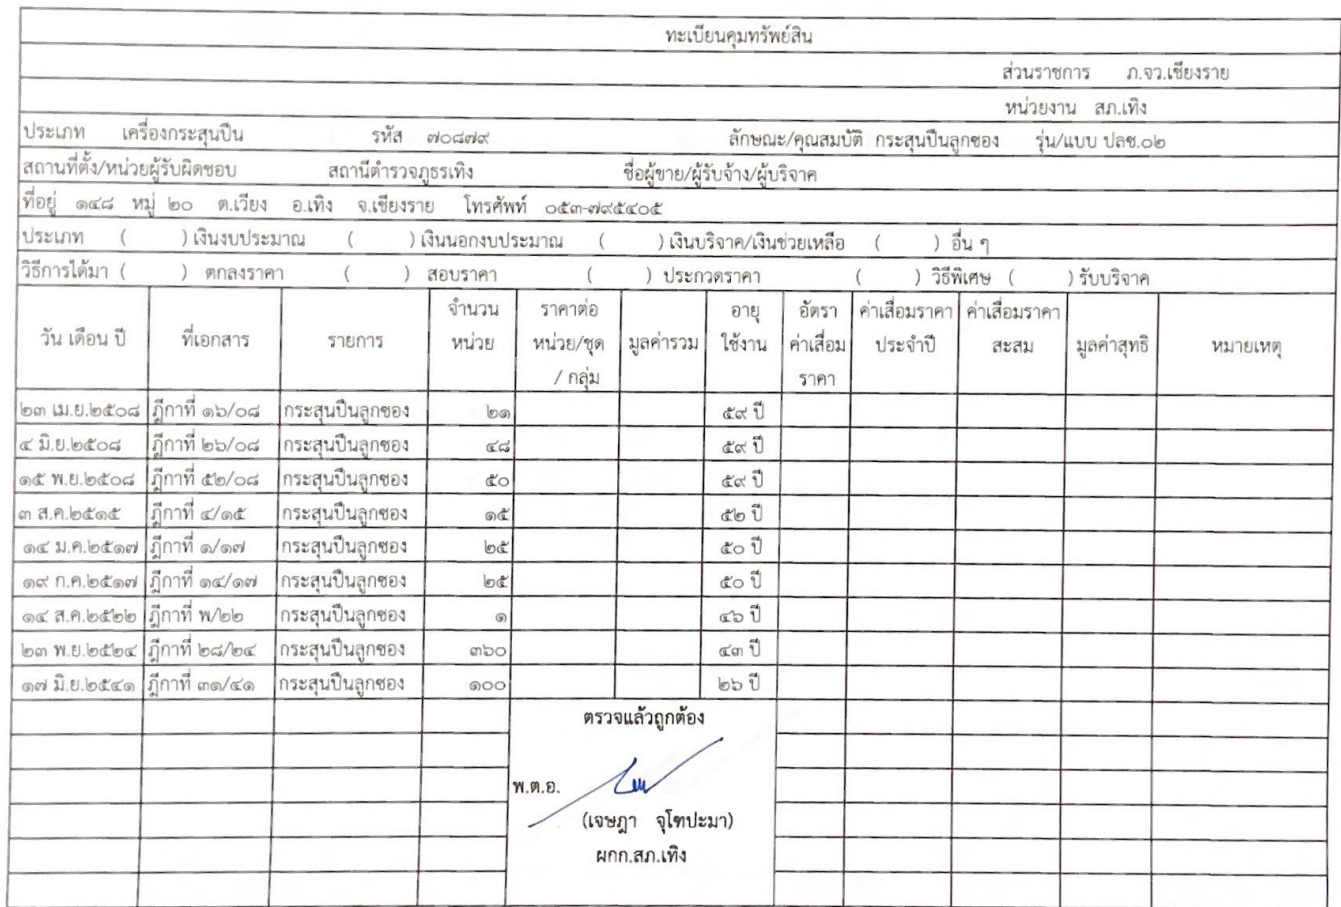 ทะเบียนคุมทรัพย์สิน
ส่วนราชการ ภ.จว.เชียงราย
หน่วยงาน สภ.เทิง
ประเภท เครื่องกระสุนปืน รหัส ๗๐๘๗๙ ลักษณะ/คุณสมบัติ กระสุนปืนลูกซอง รุ่น/แบบ ปลซ.๐๒
สถานที่ตั้ง/หน่วยผู้รับผิดชอบ สถานีตำรวจภูธรเทิง ชื่อผู้ขาย/ผู้รับจ้าง/ผู้บริจาค
ที่อยู่ ๑๔๘ หมู่ ๒๐ ต.เวียง อ.เทิง จ.เชียงราย โทรศัพท์ ๐๕๓-๗๙๕๔๐๕
ประเภท ( ) เงินงบประมาณ ( ) เงินนอกงบประมาณ ( ) เงินบริจาค/เงินช่วยเหลือ ( ) อื่น ๆ
วิธีการได้มา ( ) ตกลงราคา ( ) สอบราคา ( ) ประกวดราคา ( ) วิธีพิเศษ ( ) รับบริจาค
วัน เดือน ปี ที่เอกสาร รายการ จำนวนหน่วย ราคาต่อหน่วย/ชุด / กลุ่ม มูลค่ารวม อายุใช้งาน อัตราค่าเสื่อมราคา ค่าเสื่อมราคาประจำปี ค่าเสื่อมราคาสะสม มูลค่าสุทธิ หมายเหตุ
๒๓ เม.ย.๒๕๐๘ ฎีกาที่ ๑๖/๐๘ กระสุนปืนลูกซอง ๒๑ ๕๙ ปี
๔ มิ.ย.๒๕๐๘ ฎีกาที่ ๒๖/๐๘ กระสุนปืนลูกซอง ๔๘ ๕๙ ปี
๑๕ พ.ย.๒๕๐๘ ฎีกาที่ ๕๒/๐๘ กระสุนปืนลูกซอง ๕๐ ๕๙ ปี
๓ ส.ค.๒๕๑๕ ฎีกาที่ ๔/๑๕ กระสุนปืนลูกซอง ๑๕ ๕๒ ปี
๑๔ ม.ค.๒๕๑๗ ฎีกาที่ ๑/๑๗ กระสุนปืนลูกซอง ๒๕ ๕๐ ปี
๑๙ ก.ค.๒๕๑๗ ฎีกาที่ ๑๔/๑๗ กระสุนปืนลูกซอง ๒๕ ๕๐ ปี
๑๔ ส.ค.๒๕๒๒ ฎีกาที่ พ/๒๒ กระสุนปืนลูกซอง ๑ ๔๖ ปี
๒๓ พ.ย.๒๕๒๔ ฎีกาที่ ๒๘/๒๔ กระสุนปืนลูกซอง ๓๖๐ ๔๓ ปี
๑๗ มิ.ย.๒๕๔๑ ฎีกาที่ ๓๑/๔๑ กระสุนปืนลูกซอง ๑๐๐ ๒๖ ปี
ตรวจแล้วถูกต้อง
พ.ต.อ.
(เจษฎา จุโฑปะมา)
ผกก.สภ.เทิง